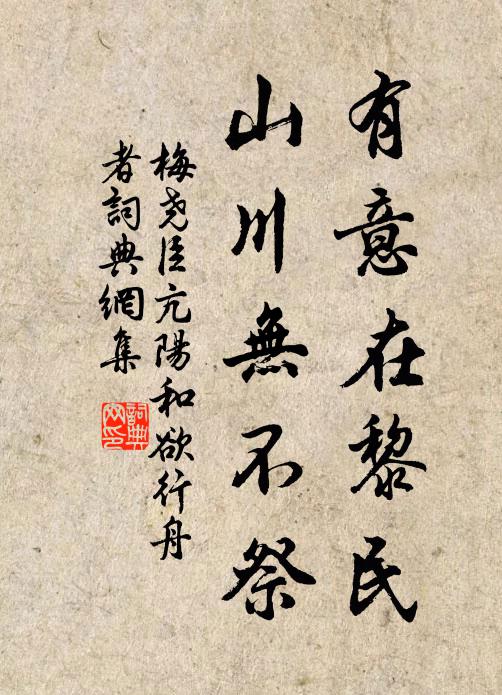 有意在黎民
山川無不祭
梅尧臣亢陽和欲行舟
者詞典網集
詞典
网印